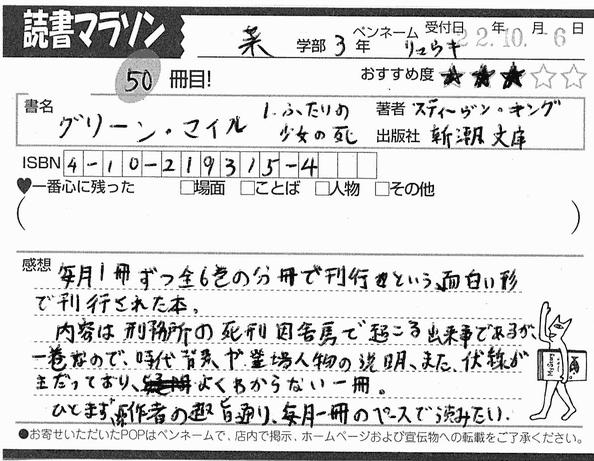 読書マラソン
薬 学部 3 年 ペンネーム リュウキ 受付日 22年10月6日
50 冊目! おすすめ度 ★★★☆☆
書名 グリーン・マイル 1.ふたりの少女の死 著者 スティーヴン・キング
出版社 新潮文庫
ISBN 4-10-219315-4
♥一番心に残った □場面 □ことば □人物 □その他
( )
感想 毎月1冊ずつ全6巻の分冊で刊行という、面白い形
で刊行された本。
内容は刑務所の死刑囚舎房で起こる出来事であるが、
一巻なので、時代背景や登場人物の説明、また、伏線が
主だっており、よくわからない一冊。
ひとまず原作者の趣旨通り、毎月一冊のペースで読みたい。
●お寄せいただいたPOPはペンネームで、店内で掲示、ホームページおよび宣伝物への転載をご了承ください。